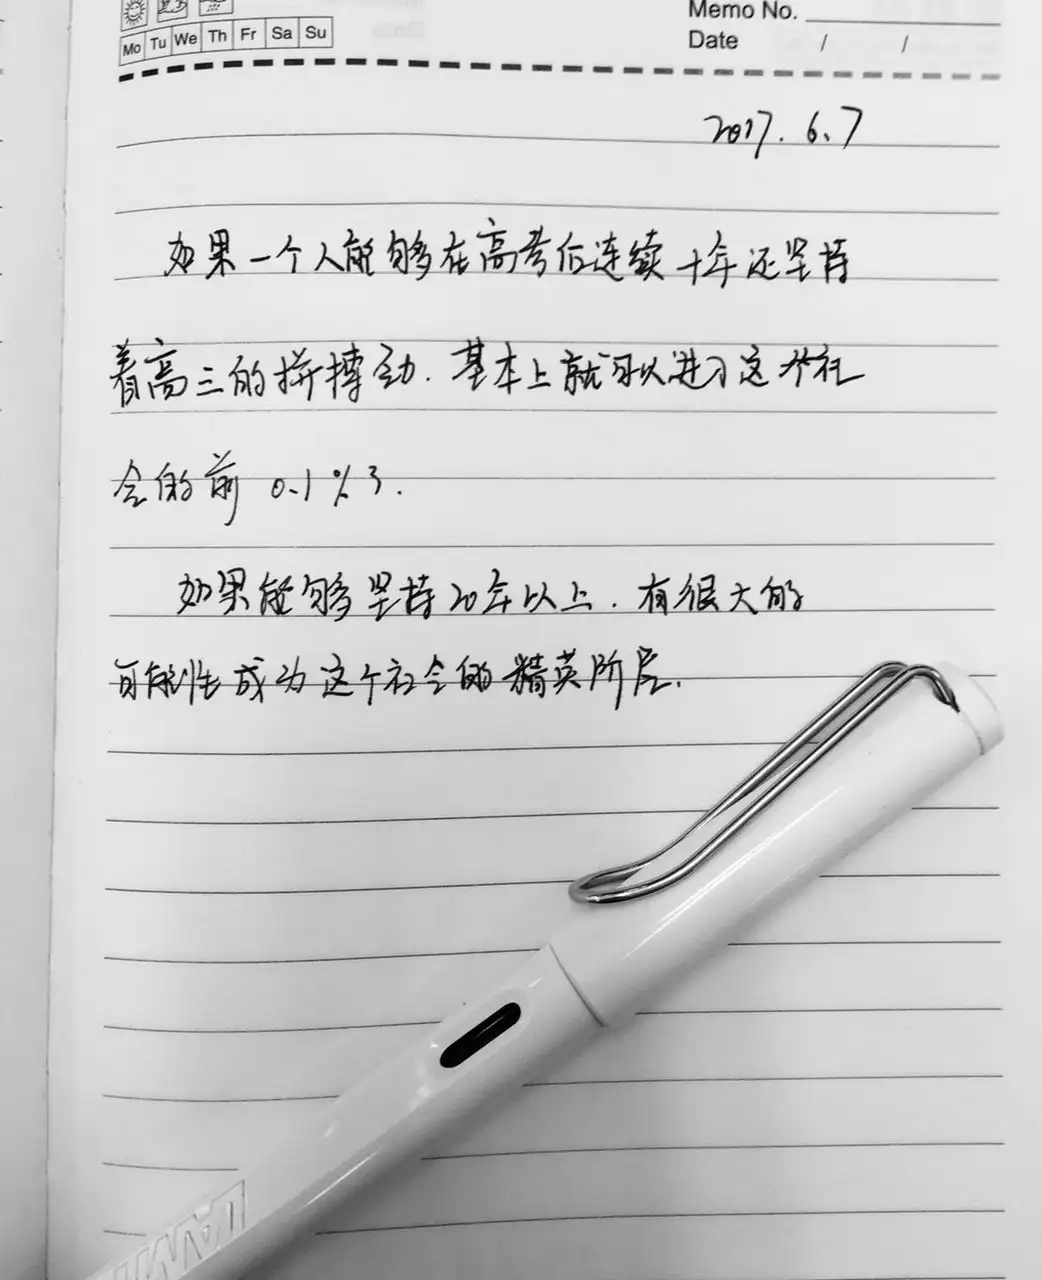 Memo No.
Mo Tu We Th Fr Sa Su
Date / /
2017.6.7
如果一个人能够在高考后连续十年还坚持
着高三的拼搏劲.基本上就可以进入这个社
会的前0.1%了.
如果能够坚持20年以上.有很大的
可能性成为这个社会的精英阶层.
LAMY